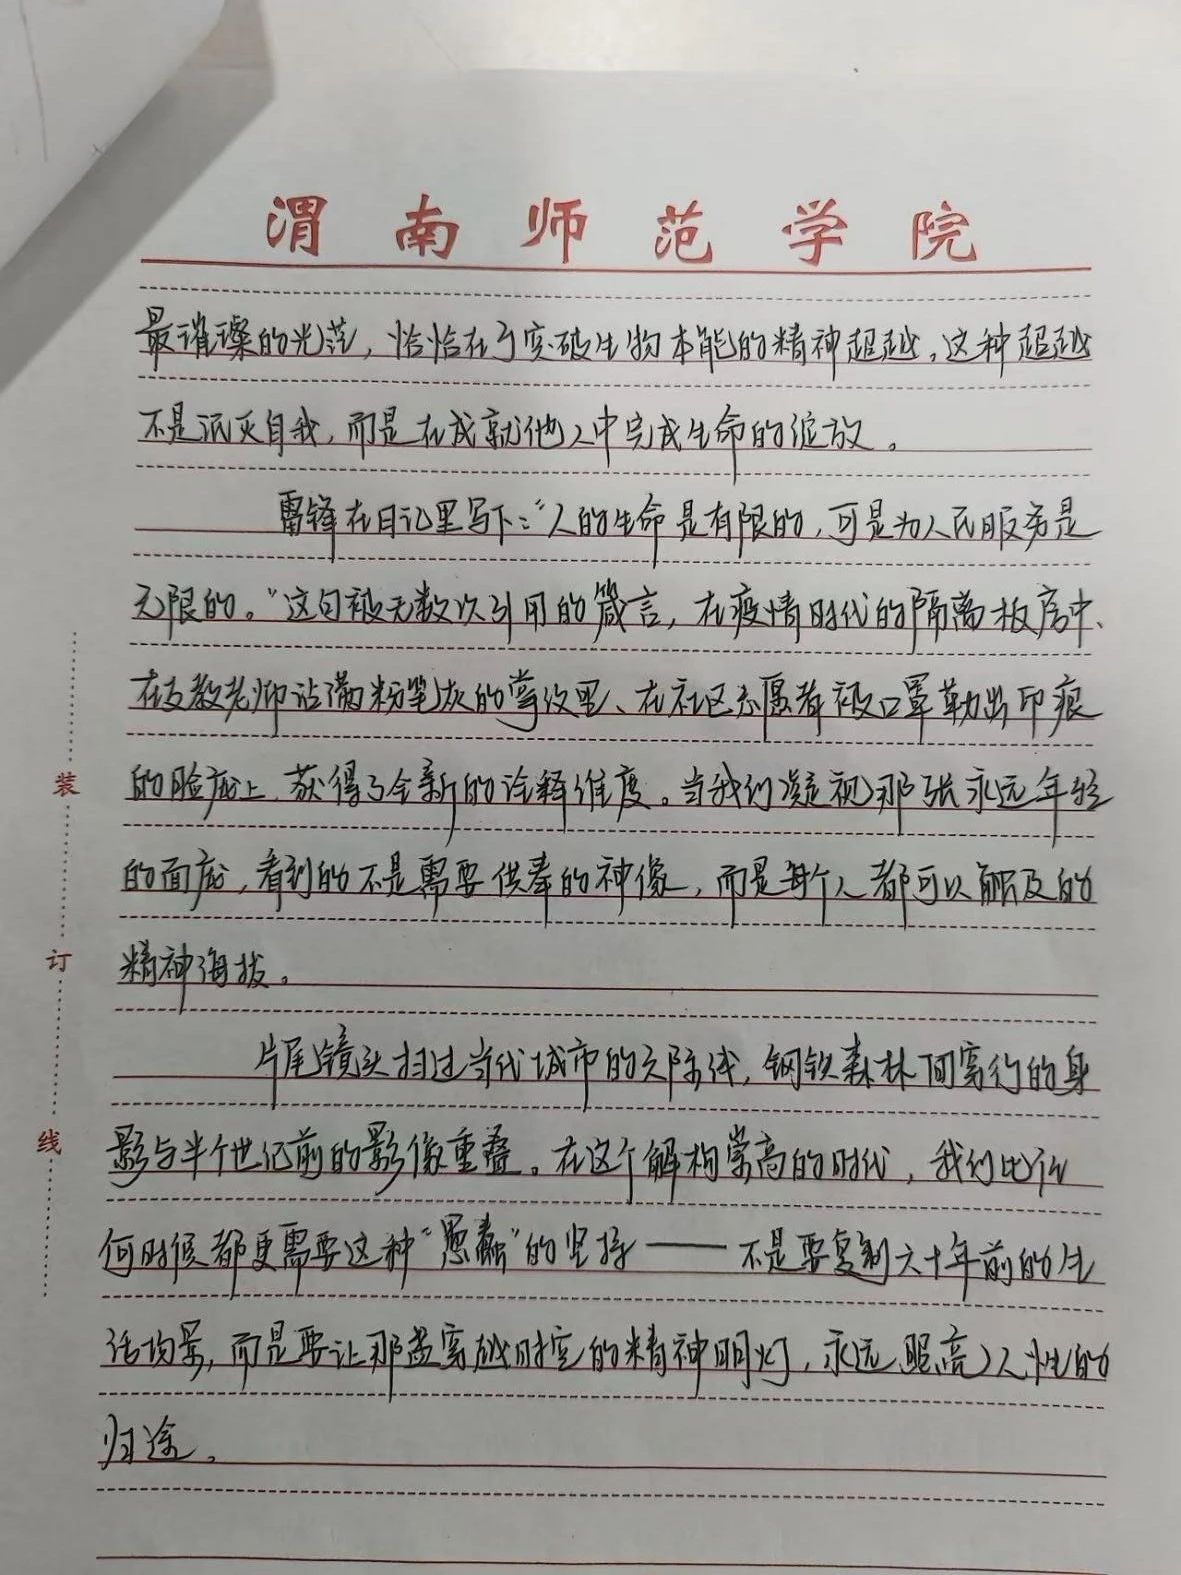 渭南师范学院
最璀璨的光芒，恰恰在于突破生物本能的精神超越，这种超越
不是泯灭自我，而是在成就他人中完成生命的绽放。
雷锋在日记里写下："人的生命是有限的，可是为人民服务是
无限的。"这句被无数次引用的箴言，在疫情时代的隔离板房中、
在支教老师沾满粉笔灰的掌纹里、在社区志愿者被口罩勒出印痕
的脸庞上，获得了全新的诠释维度。当我们凝视那张永远年轻
的面庞，看到的不是需要供奉的神像，而是每个人都可以触及的
精神海拔。
片尾镜头扫过当代城市的天际线，钢铁森林间穿行的身
影与半个世纪前的影像重叠。在这个解构崇高的时代，我们比任
何时候都更需要这种"愚蠢"的坚持——不是要复制六十年前的生
活场景，而是要让那盏穿越时空的精神明灯，永远照亮人性的
归途。
装
订
线